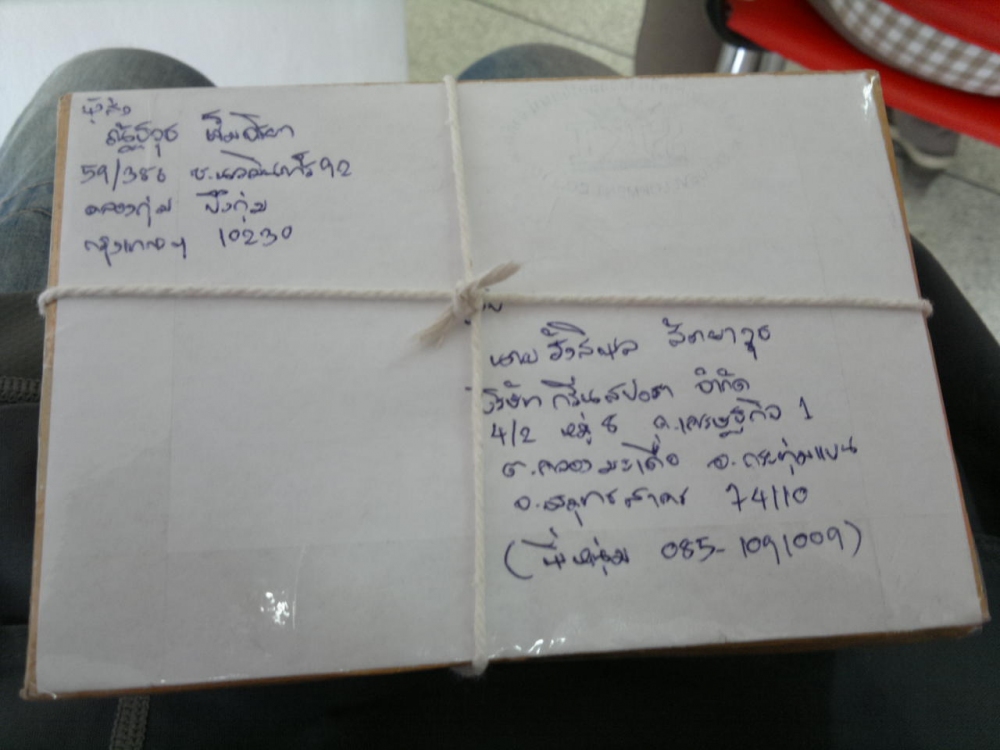 ผู้ส่ง
ณัฐวุธ
59/386 ซ.นวมินทร์ 92
คลองกุ่ม บึงกุ่ม
กรุงเทพฯ 10230
รับ
นาย รังสิมุล สัตยาวุธ
บริษัท กรีนสปอต จำกัด
4/2 หมู่ 8 ถ.เศรษฐกิจ 1
ต.คลองมะเดื่อ อ.กระทุ่มแบน
จ.สมุทรสาคร 74110
(พี่หนุ่ม 085-1091009)